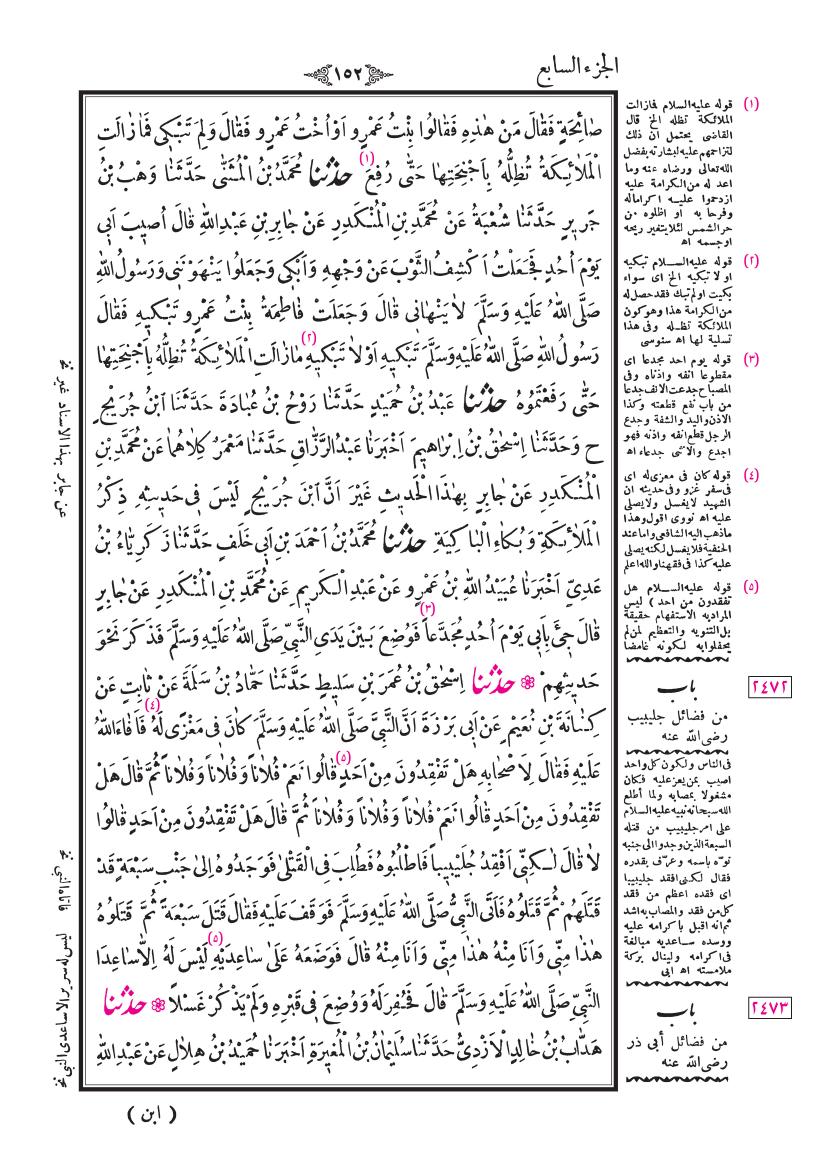 الجزء السابع
١٥٢
صَائِحَةٍ فَقَالَ مَنْ هٰذِهِ فَقَالُوا بِنْتُ عَمْرٍو اَوْ اُخْتُ عَمْرٍو فَقَالَ وَلِمَ تَبْكِى فَمَا زَالَتِ
الْمَلَائِكَةُ تُظِلُّهُ بِاَجْنِحَتِهَا حَتّٰى رُفِعَ (١) حَدَّثَنَا مُحَمَّدُ بْنُ الْمُثَنّٰى حَدَّثَنَا وَهْبُ بْنُ
جَرِيرٍ حَدَّثَنَا شُعْبَةُ عَنْ مُحَمَّدِ بْنِ الْمُنْكَدِرِ عَنْ جَابِرِ بْنِ عَبْدِ اللهِ قَالَ اُصِيبَ اَبِى
يَوْمَ اُحُدٍ فَجَعَلْتُ اَكْشِفُ الثَّوْبَ عَنْ وَجْهِهِ وَاَبْكِى وَجَعَلُوا يَنْهَوْنَنِى وَرَسُولُ اللهِ
صَلَّى اللهُ عَلَيْهِ وَسَلَّمَ لَا يَنْهَانِى قَالَ وَجَعَلَتْ فَاطِمَةُ بِنْتُ عَمْرٍو تَبْكِيهِ فَقَالَ
رَسُولُ اللهِ صَلَّى اللهُ عَلَيْهِ وَسَلَّمَ تَبْكِيهِ اَوْ لَا تَبْكِيهِ (٢) مَا زَالَتِ الْمَلَائِكَةُ تُظِلُّهُ بِاَجْنِحَتِهَا
حَتّٰى رَفَعْتُمُوهُ حَدَّثَنَا عَبْدُ بْنُ حُمَيْدٍ حَدَّثَنَا رَوْحُ بْنُ عُبَادَةَ حَدَّثَنَا ابْنُ جُرَيْجٍ
ح وَحَدَّثَنَا اِسْحٰقُ بْنُ اِبْرَاهِيمَ اَخْبَرَنَا عَبْدُ الرَّزَّاقِ حَدَّثَنَا مَعْمَرٌ كِلَاهُمَا عَنْ مُحَمَّدِ بْنِ
الْمُنْكَدِرِ عَنْ جَابِرٍ بِهٰذَا الْحَدِيثِ غَيْرَ اَنَّ ابْنَ جُرَيْجٍ لَيْسَ فِى حَدِيثِهِ ذِكْرُ
الْمَلَائِكَةِ وَبُكَاءِ الْبَاكِيَةِ حَدَّثَنَا مُحَمَّدُ بْنُ اَحْمَدَ بْنِ اَبِى خَلَفٍ حَدَّثَنَا زَكَرِيَّاءُ بْنُ
عَدِىٍّ اَخْبَرَنَا عُبَيْدُ اللهِ بْنُ عَمْرٍو عَنْ عَبْدِ الْكَرِيمِ عَنْ مُحَمَّدِ بْنِ الْمُنْكَدِرِ عَنْ جَابِرٍ
قَالَ جِىءَ بِاَبِى يَوْمَ اُحُدٍ مُجَدَّعاً (٣) فَوُضِعَ بَيْنَ يَدَىِ النَّبِىِّ صَلَّى اللهُ عَلَيْهِ وَسَلَّمَ فَذَكَرَ نَحْوَ
حَدِيثِهِمْ ❁ حَدَّثَنَا اِسْحٰقُ بْنُ عُمَرَ بْنِ سَلِيطٍ حَدَّثَنَا حَمَّادُ بْنُ سَلَمَةَ عَنْ ثَابِتٍ عَنْ
كِنَانَةَ بْنِ نُعَيْمٍ عَنْ اَبِى بَرْزَةَ اَنَّ النَّبِىَّ صَلَّى اللهُ عَلَيْهِ وَسَلَّمَ كَانَ فِى مَغْزًى لَهُ (٤) فَاَفَاءَ اللهُ
عَلَيْهِ فَقَالَ لِاَصْحَابِهِ هَلْ تَفْقِدُونَ مِنْ اَحَدٍ (٥) قَالُوا نَعَمْ فُلَاناً وَفُلَاناً وَفُلَاناً ثُمَّ قَالَ هَلْ
تَفْقِدُونَ مِنْ اَحَدٍ قَالُوا نَعَمْ فُلَاناً وَفُلَاناً وَفُلَاناً ثُمَّ قَالَ هَلْ تَفْقِدُونَ مِنْ اَحَدٍ قَالُوا
لَا قَالَ لٰكِنِّى اَفْقِدُ جُلَيْبِيباً فَاطْلُبُوهُ فَطُلِبَ فِى الْقَتْلٰى فَوَجَدُوهُ اِلٰى جَنْبِ سَبْعَةٍ قَدْ
قَتَلَهُمْ ثُمَّ قَتَلُوهُ فَاَتَى النَّبِىُّ صَلَّى اللهُ عَلَيْهِ وَسَلَّمَ فَوَقَفَ عَلَيْهِ فَقَالَ قَتَلَ سَبْعَةً ثُمَّ قَتَلُوهُ
هٰذَا مِنِّى وَاَنَا مِنْهُ هٰذَا مِنِّى وَاَنَا مِنْهُ قَالَ فَوَضَعَهُ عَلٰى سَاعِدَيْهِ (٥) لَيْسَ لَهُ اِلَّا سَاعِدَا
النَّبِىِّ صَلَّى اللهُ عَلَيْهِ وَسَلَّمَ قَالَ فَحُفِرَ لَهُ وَوُضِعَ فِى قَبْرِهِ وَلَمْ يَذْكُرْ غَسْلاً ❁ حَدَّثَنَا
هَدَّابُ بْنُ خَالِدٍ الْاَزْدِىُّ حَدَّثَنَا سُلَيْمَانُ بْنُ الْمُغِيرَةِ اَخْبَرَنَا حُمَيْدُ بْنُ هِلَالٍ عَنْ عَبْدِ اللهِ
( ابن )
(١) قوله عليه السلام فمازالت
الملائكة تظله الخ قال
القاضى يحتمل ان ذلك
لتزاحمهم عليه لبشارته بفضل
الله تعالى ورضاه عنه وما
اعد له من الكرامة عليه
ازدحموا عليه اكراما له
وفرحا به او اظلوه من
حر الشمس لئلا يتغير ريحه
او جسمه اه
(٢) قوله عليه السلام تبكيه
او لا تبكيه الخ اى سواء
بكيت او لم تبك فقد حصل له
من الكرامة هذا وهو كون
الملائكة تظله وفى هذا
تسلية لها اه سنوسى
(٣) قوله يوم احد مجدعا اى
مقطوعا انفه واذناه وفى
المصباح جدعت الانف جدعا
من باب نفع قطعته وكذا
الاذن واليد والشفة وجدع
الرجل قطع انفه واذنه فهو
اجدع والانثى جدعاء اه
(٤) قوله كان فى مغزى له اى
فى سفر غزو وفى حديثه ان
الشهيد لا يغسل ولا يصلى
عليه اه نووى اقول وهذا
ماذهب اليه الشافعى واما عند
الحنفية فلا يغسل لكنه يصلى
عليه كذا فى فقهنا والله اعلم
(٥) قوله عليه السلام هل
تفقدون من احد ) ليس
المراد به الاستفهام حقيقة
بل التنويه والتعظيم لمن لم
يحفلوا به لكونه غامضا
٢٤٧٢
باب
من فضائل جليبيب
رضى الله عنه
فى الناس ولكون كل واحد
اصيب بمن يعز عليه فكان
مشغولا بمصابه ولما أطلع
الله سبحانه نبيه عليه السلام
على امر جليبيب من قتله
السبعة الذين وجدوا الى جنبه
نوّه باسمه وعرّف بقدره
فقال لكنى افقد جليبيبا
اى فقده اعظم من فقد
كل من فقد والمصاب به اشد
ثم انه اقبل باكرامه عليه
ووسده ساعديه مبالغة
فى اكرامه ولينال بركة
ملامسته اه ابى
٢٤٧٣
باب
من فضائل أبى ذر
رضى الله عنه
عن جابر بهذا الاسناد غير نخ
فاتاه النبى نخ
ليس له سرير الا ساعدى النبى نخ